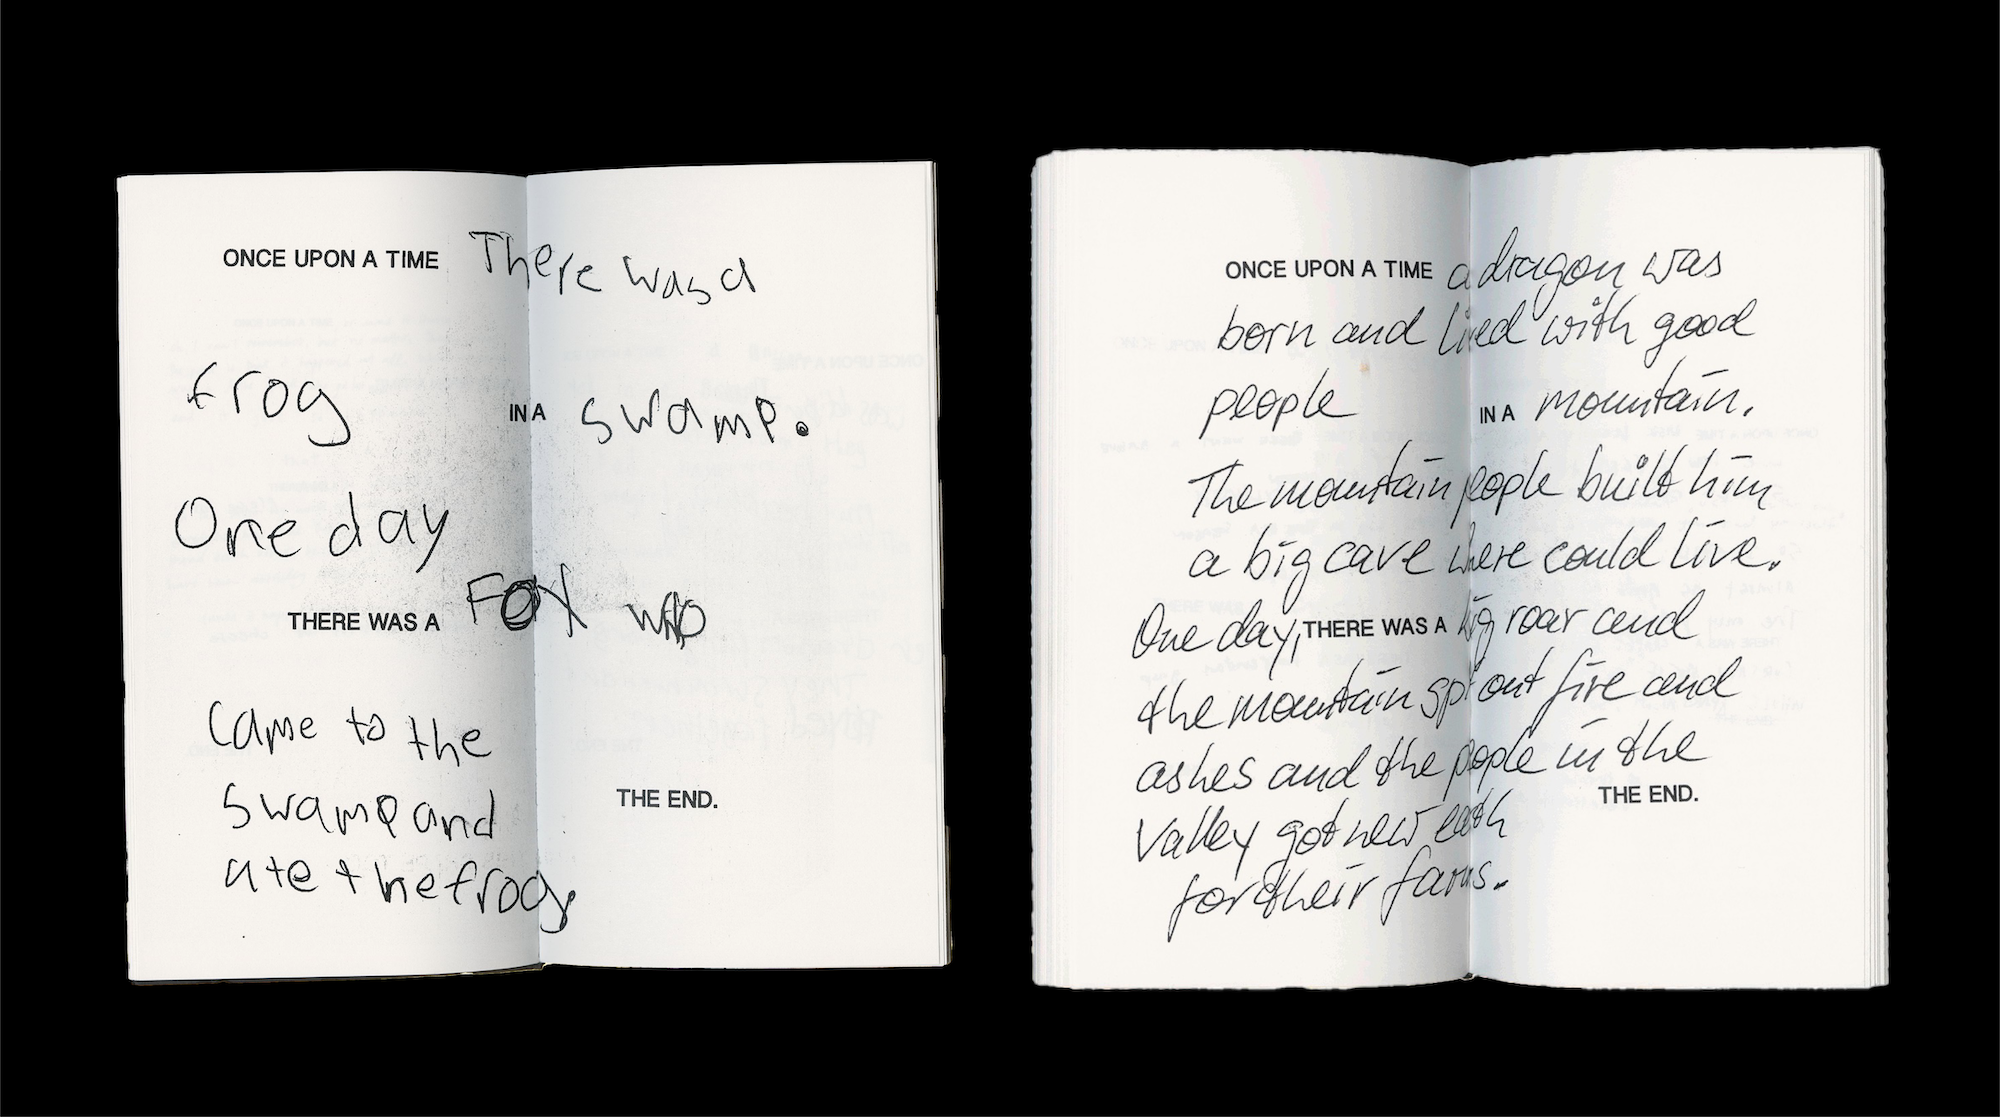 ONCE UPON A TIME There was a
frog IN A swamp.
One day
THERE WAS A FOX who
came to the
swamp and
ate the frog.
THE END.
ONCE UPON A TIME a dragon was
born and lived with good
people IN A mountain.
The mountain people built him
a big cave where could live.
One day, THERE WAS A big roar and
the mountain spit out fire and
ashes and the people in the
THE END.
Valley got new earth
for their farms.